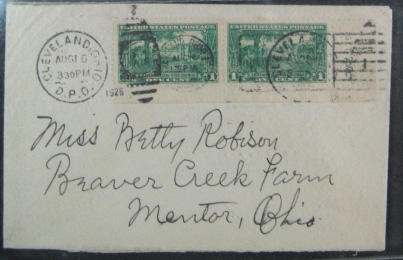 CLEVELAND, OHIO
AUG 16
330PM
D.P.O.
1925
UNITED STATES POSTAGE
UNITED STATES POSTAGE
1 1
1 1
CLEVEL
Miss Betty Robison
Beaver Creek Farm
Mentor, Ohio.